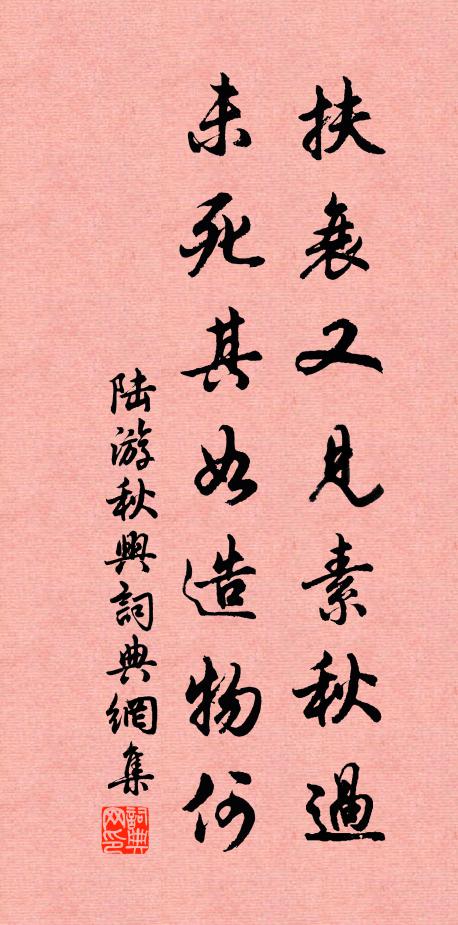 扶衰又見素秋過
未死其如造物何
陸游秋興詞典網集
詞典
网印